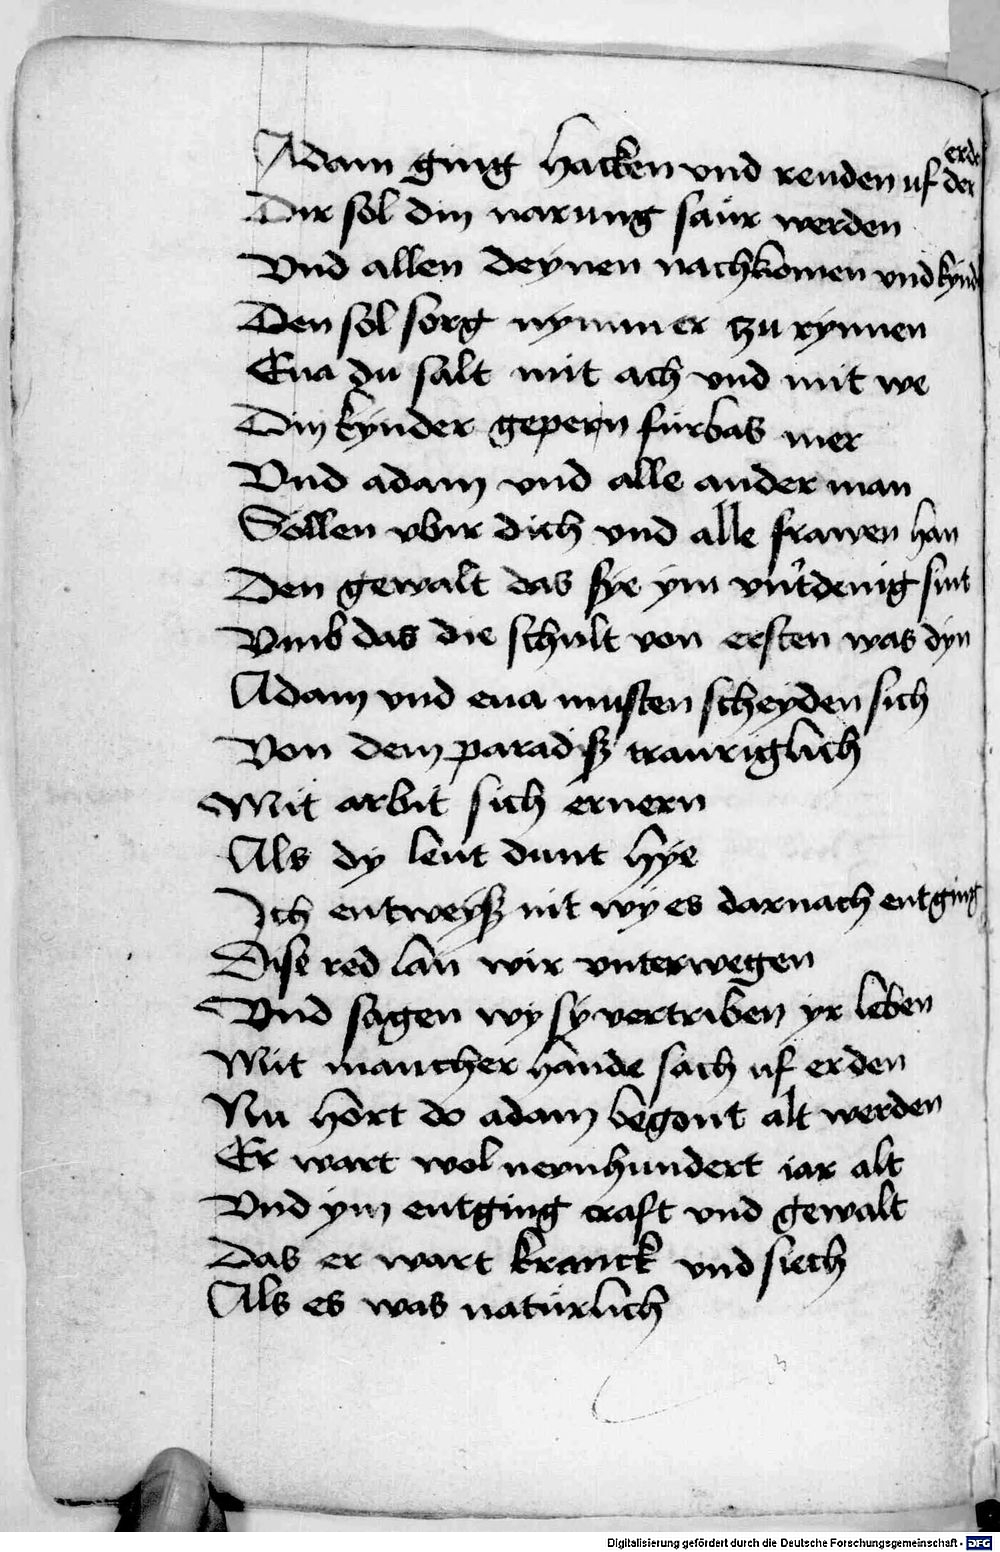 Adam ging hacken vnd reuden uf der erde
Dir sol din narung saür werden
Vnd allen deynen nachkomen vnd kynd
Den sol sorg nymmer tzu rynnen
Eua du salt mit ach vnd mit we
Din kynder gepern fürbas mer
Vnd adam vnd alle ander man
Sollen vbir dich vnd alle frawen han
Den gewalt das sye ym sint
Vmb das die schult von ersten was dyn
Adam vnd eua musten scheyden sich
Von dem paradiß trauriglich
Mit arbit sich ernern
Als dy leut dunt hye
Ich entweyß nit wy es darnach entging
Dise red lan wir vnterwegen
Vnd sagen wy sy vertriben yr leben
Mit mancher hande sach uf erden
Nu hort do adam begont alt werden
Er wart wol neynhundert iar alt
Vnd ym entging craft vnd gewalt
Das er wart kranck vnd siech
Als es was natürlich
Digitalisierung gefördert durch die Deutsche Forschungsgemeinschaft - DFG